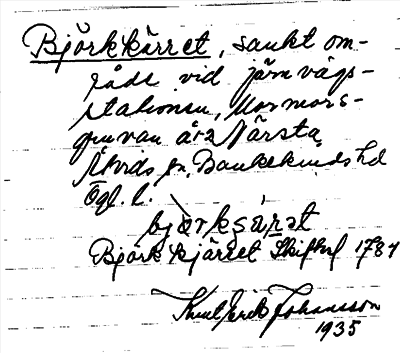 Björkkärret, sankt om-
råde vid järnvägs-
stationen, Mormors-
gruvan å 1/2 Närsta
Åtvids sn, Bankekinds hd
Ögl. l.
Björkkjärret Skifteshl 1787
Knut Erik Johansson
1935